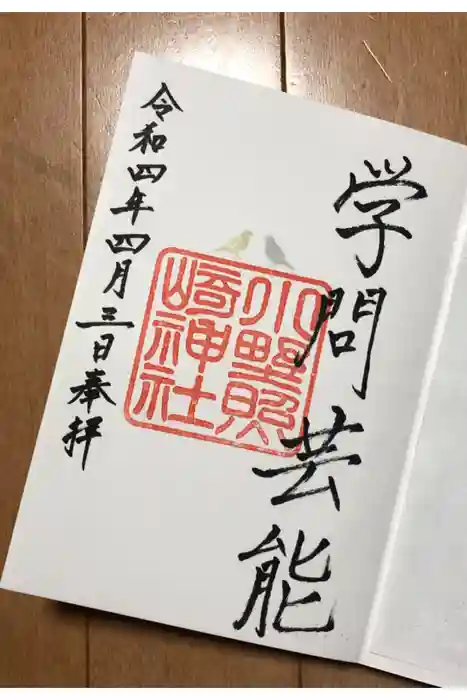 学問芸能
小野照
崎神社
令和四年四月三日奉拝